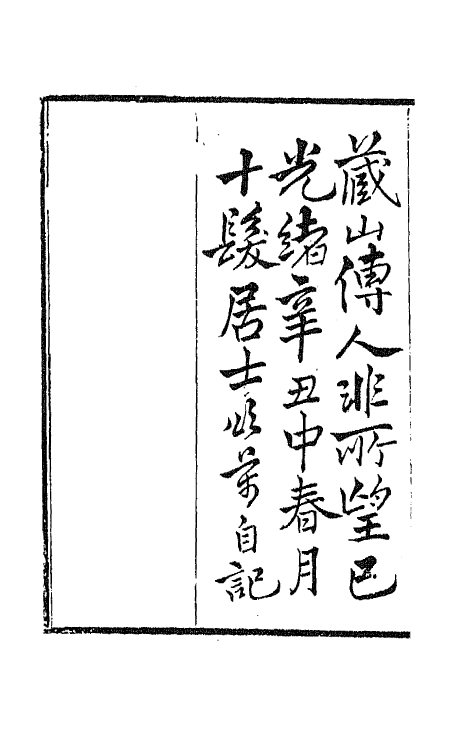 藏山傳人非所望已
光緒辛丑中春月
十髮居士頌萬自記